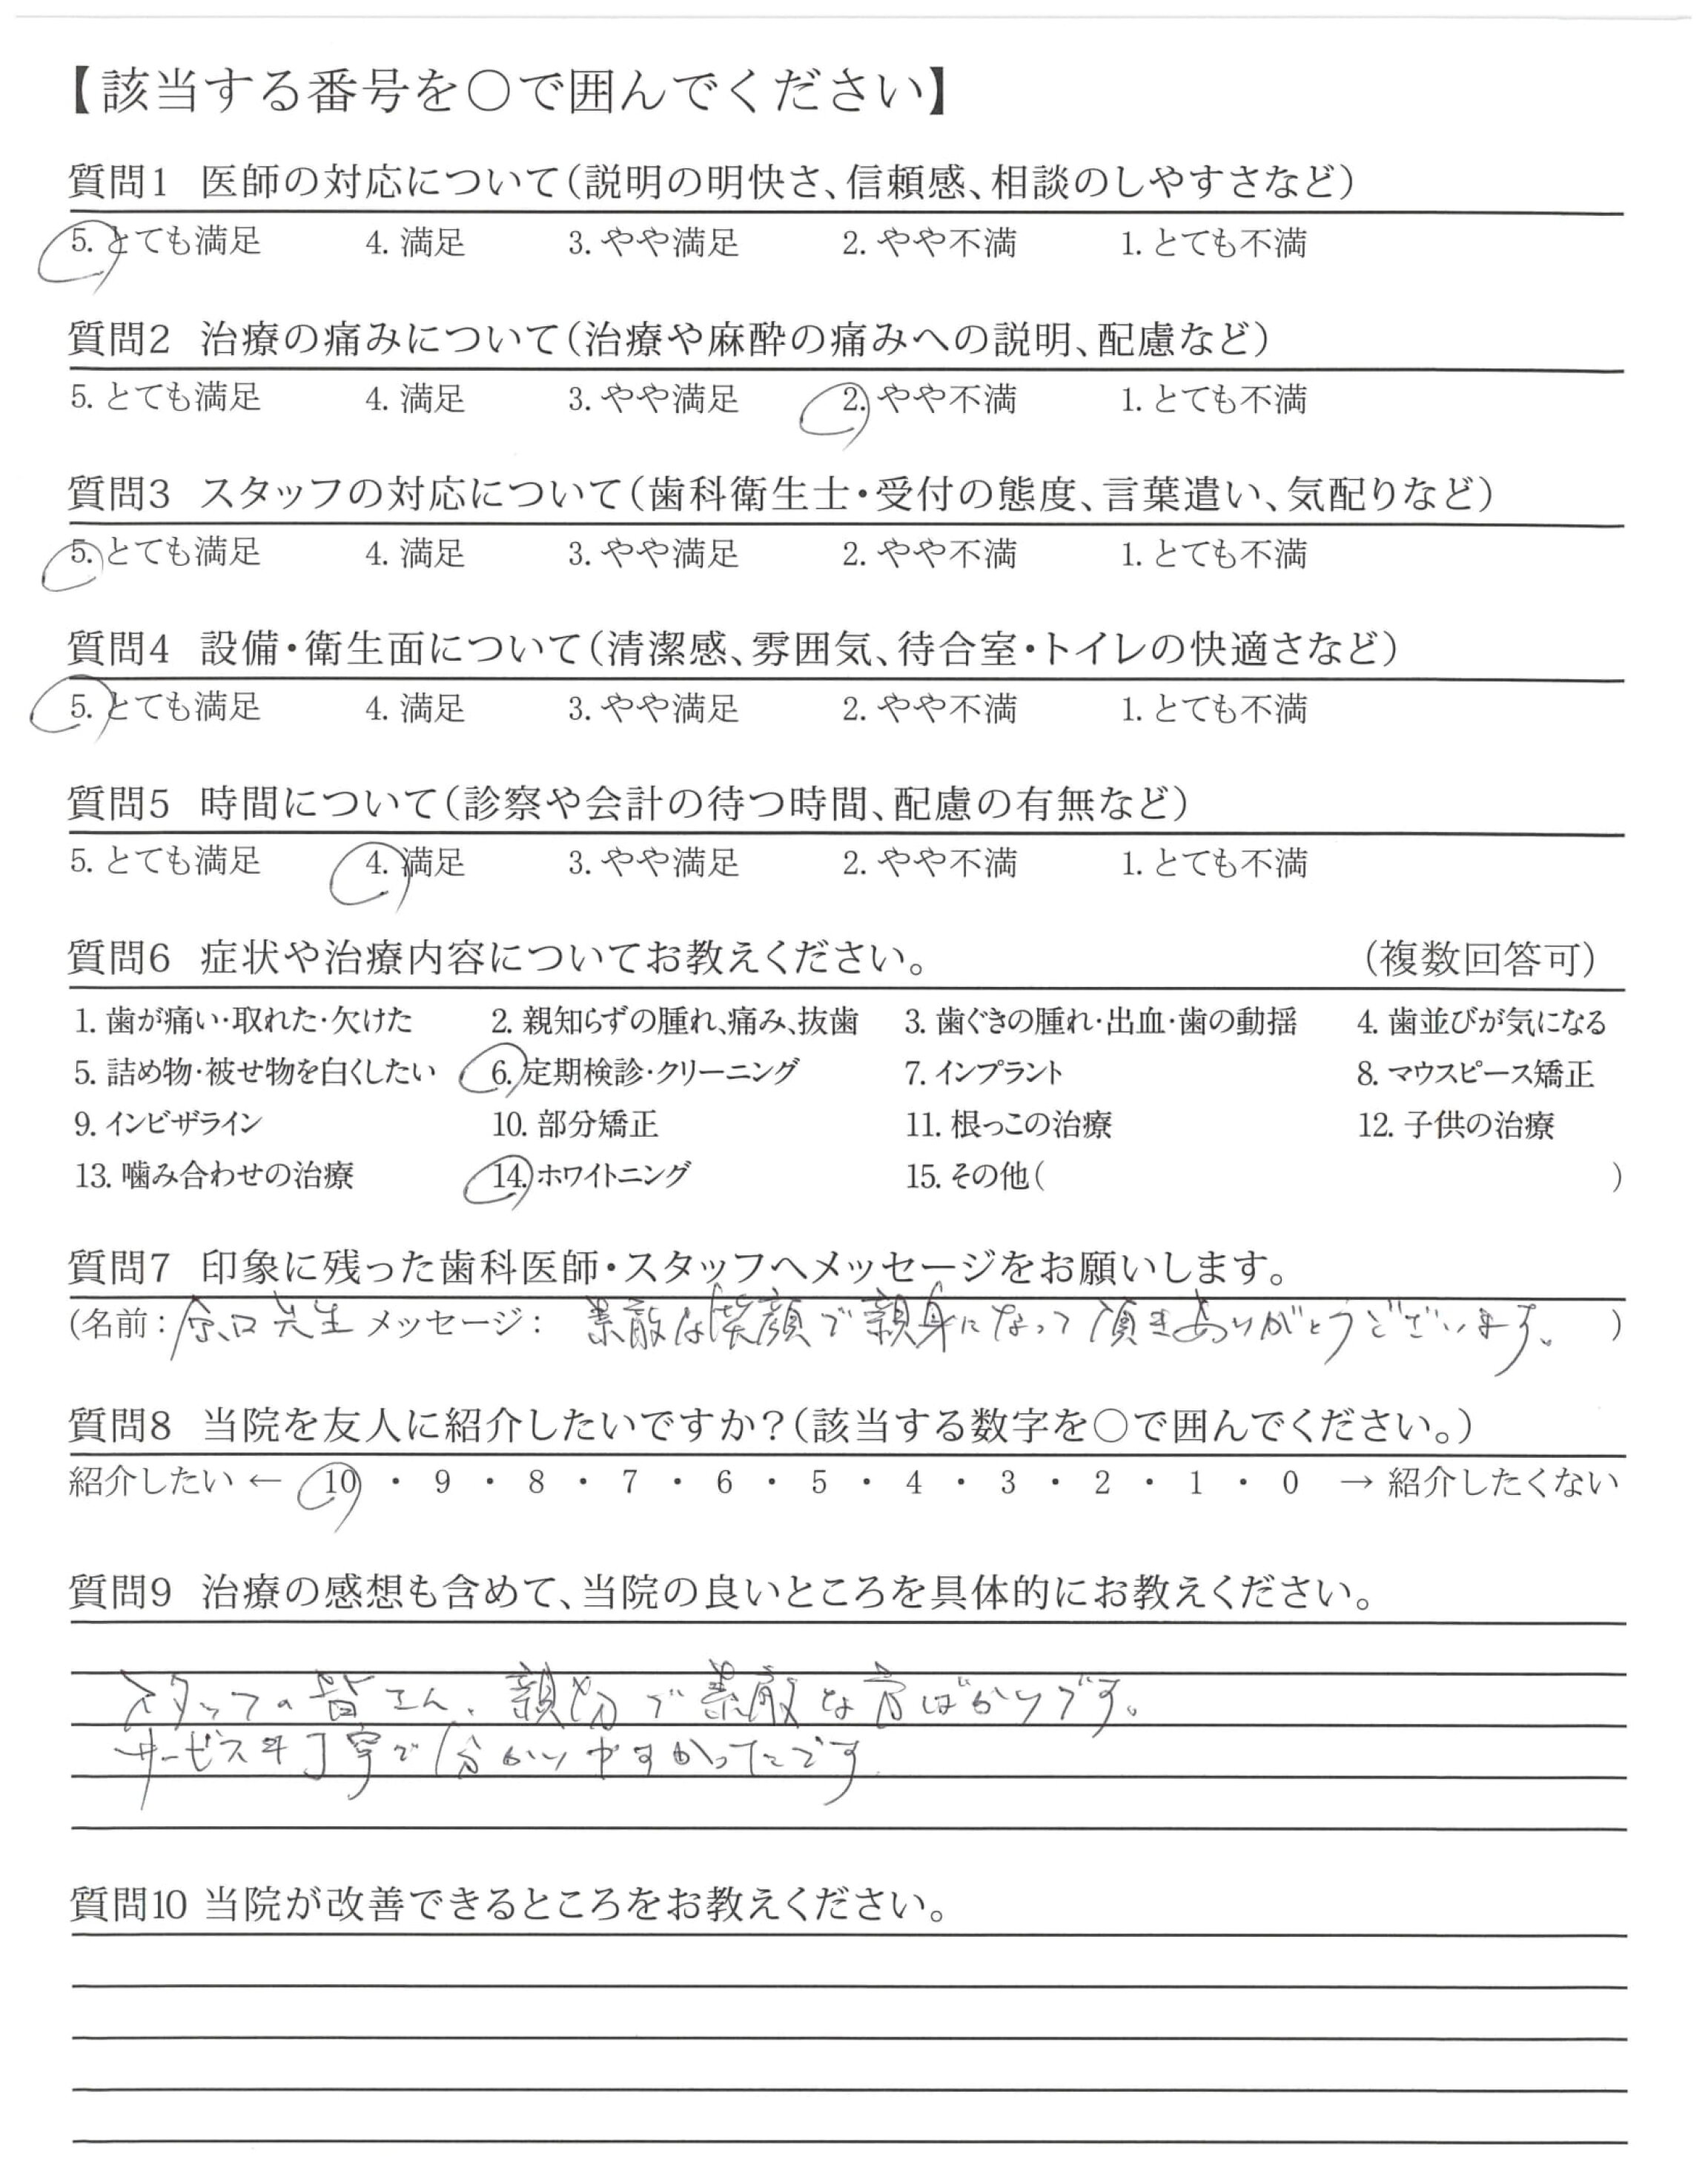 【該当する番号を〇で囲んでください】
質問1 医師の対応について(説明の明快さ、信頼感、相談のしやすさなど)
5. とても満足 4. 満足 3. やや満足 2. やや不満 1. とても不満
質問2 治療の痛みについて(治療や麻酔の痛みへの説明、配慮など)
5. とても満足 4. 満足 3. やや満足 2. やや不満 1. とても不満
質問3 スタッフの対応について(歯科衛生士・受付の態度、言葉遣い、気配りなど)
5. とても満足 4. 満足 3. やや満足 2. やや不満 1. とても不満
質問4 設備・衛生面について(清潔感、雰囲気、待合室・トイレの快適さなど)
5. とても満足 4. 満足 3. やや満足 2. やや不満 1. とても不満
質問5 時間について(診察や会計の待つ時間、配慮の有無など)
5. とても満足 4. 満足 3. やや満足 2. やや不満 1. とても不満
質問6 症状や治療内容についてお教えください。 (複数回答可)
1. 歯が痛い・取れた・欠けた 2. 親知らずの腫れ、痛み、抜歯 3. 歯ぐきの腫れ・出血・歯の動揺 4. 歯並びが気になる
5. 詰め物・被せ物を白くしたい 6. 定期検診・クリーニング 7. インプラント 8. マウスピース矯正
9. インビザライン 10. 部分矯正 11. 根っこの治療 12. 子供の治療
13. 噛み合わせの治療 14. ホワイトニング 15. その他( )
質問7 印象に残った歯科医師・スタッフへメッセージをお願いします。
(名前: 谷口先生 メッセージ: 素敵な笑顔で親身になって頂きありがとうございます。 )
質問8 当院を友人に紹介したいですか?(該当する数字を〇で囲んでください。)
紹介したい ← 10 ・ 9 ・ 8 ・ 7 ・ 6 ・ 5 ・ 4 ・ 3 ・ 2 ・ 1 ・ 0 → 紹介したくない
質問9 治療の感想も含めて、当院の良いところを具体的にお教えください。
スタッフの皆さん、親切で素敵な方ばかりです。
サービスも丁寧で分かりやすかったです
質問10 当院が改善できるところをお教えください。